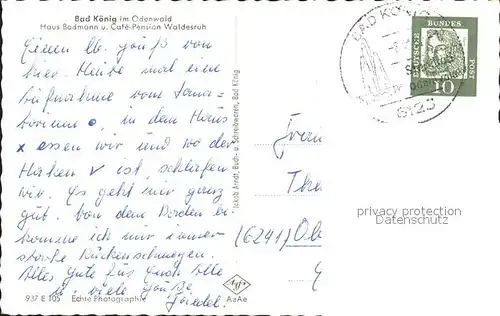 Bad König im Odenwald
Haus Badmann u. Café-Pension Waldesruh
Einen lb. Gruß von
hier. Heute mal eine
Aufnahme vom Sana-
torium o, in dem Haus
x essen wir und wo der
Haken v ist, schlafen
wir. Es geht mir ganz
gut. Von dem be-
komme ich nur immer
starke Rückenschmerzen.
Alles Gute für Euch Alle
u. viele Grüße
Friedel.
937 E 105 Echte Photographie
Agfa
AaAe
Jakob Arndt, Buch- u. Schreibwaren, Bad König
BAD KÖNIG
6123
DEUTSCHE BUNDESPOST
10
(6241)
privacy protection
Datenschutz